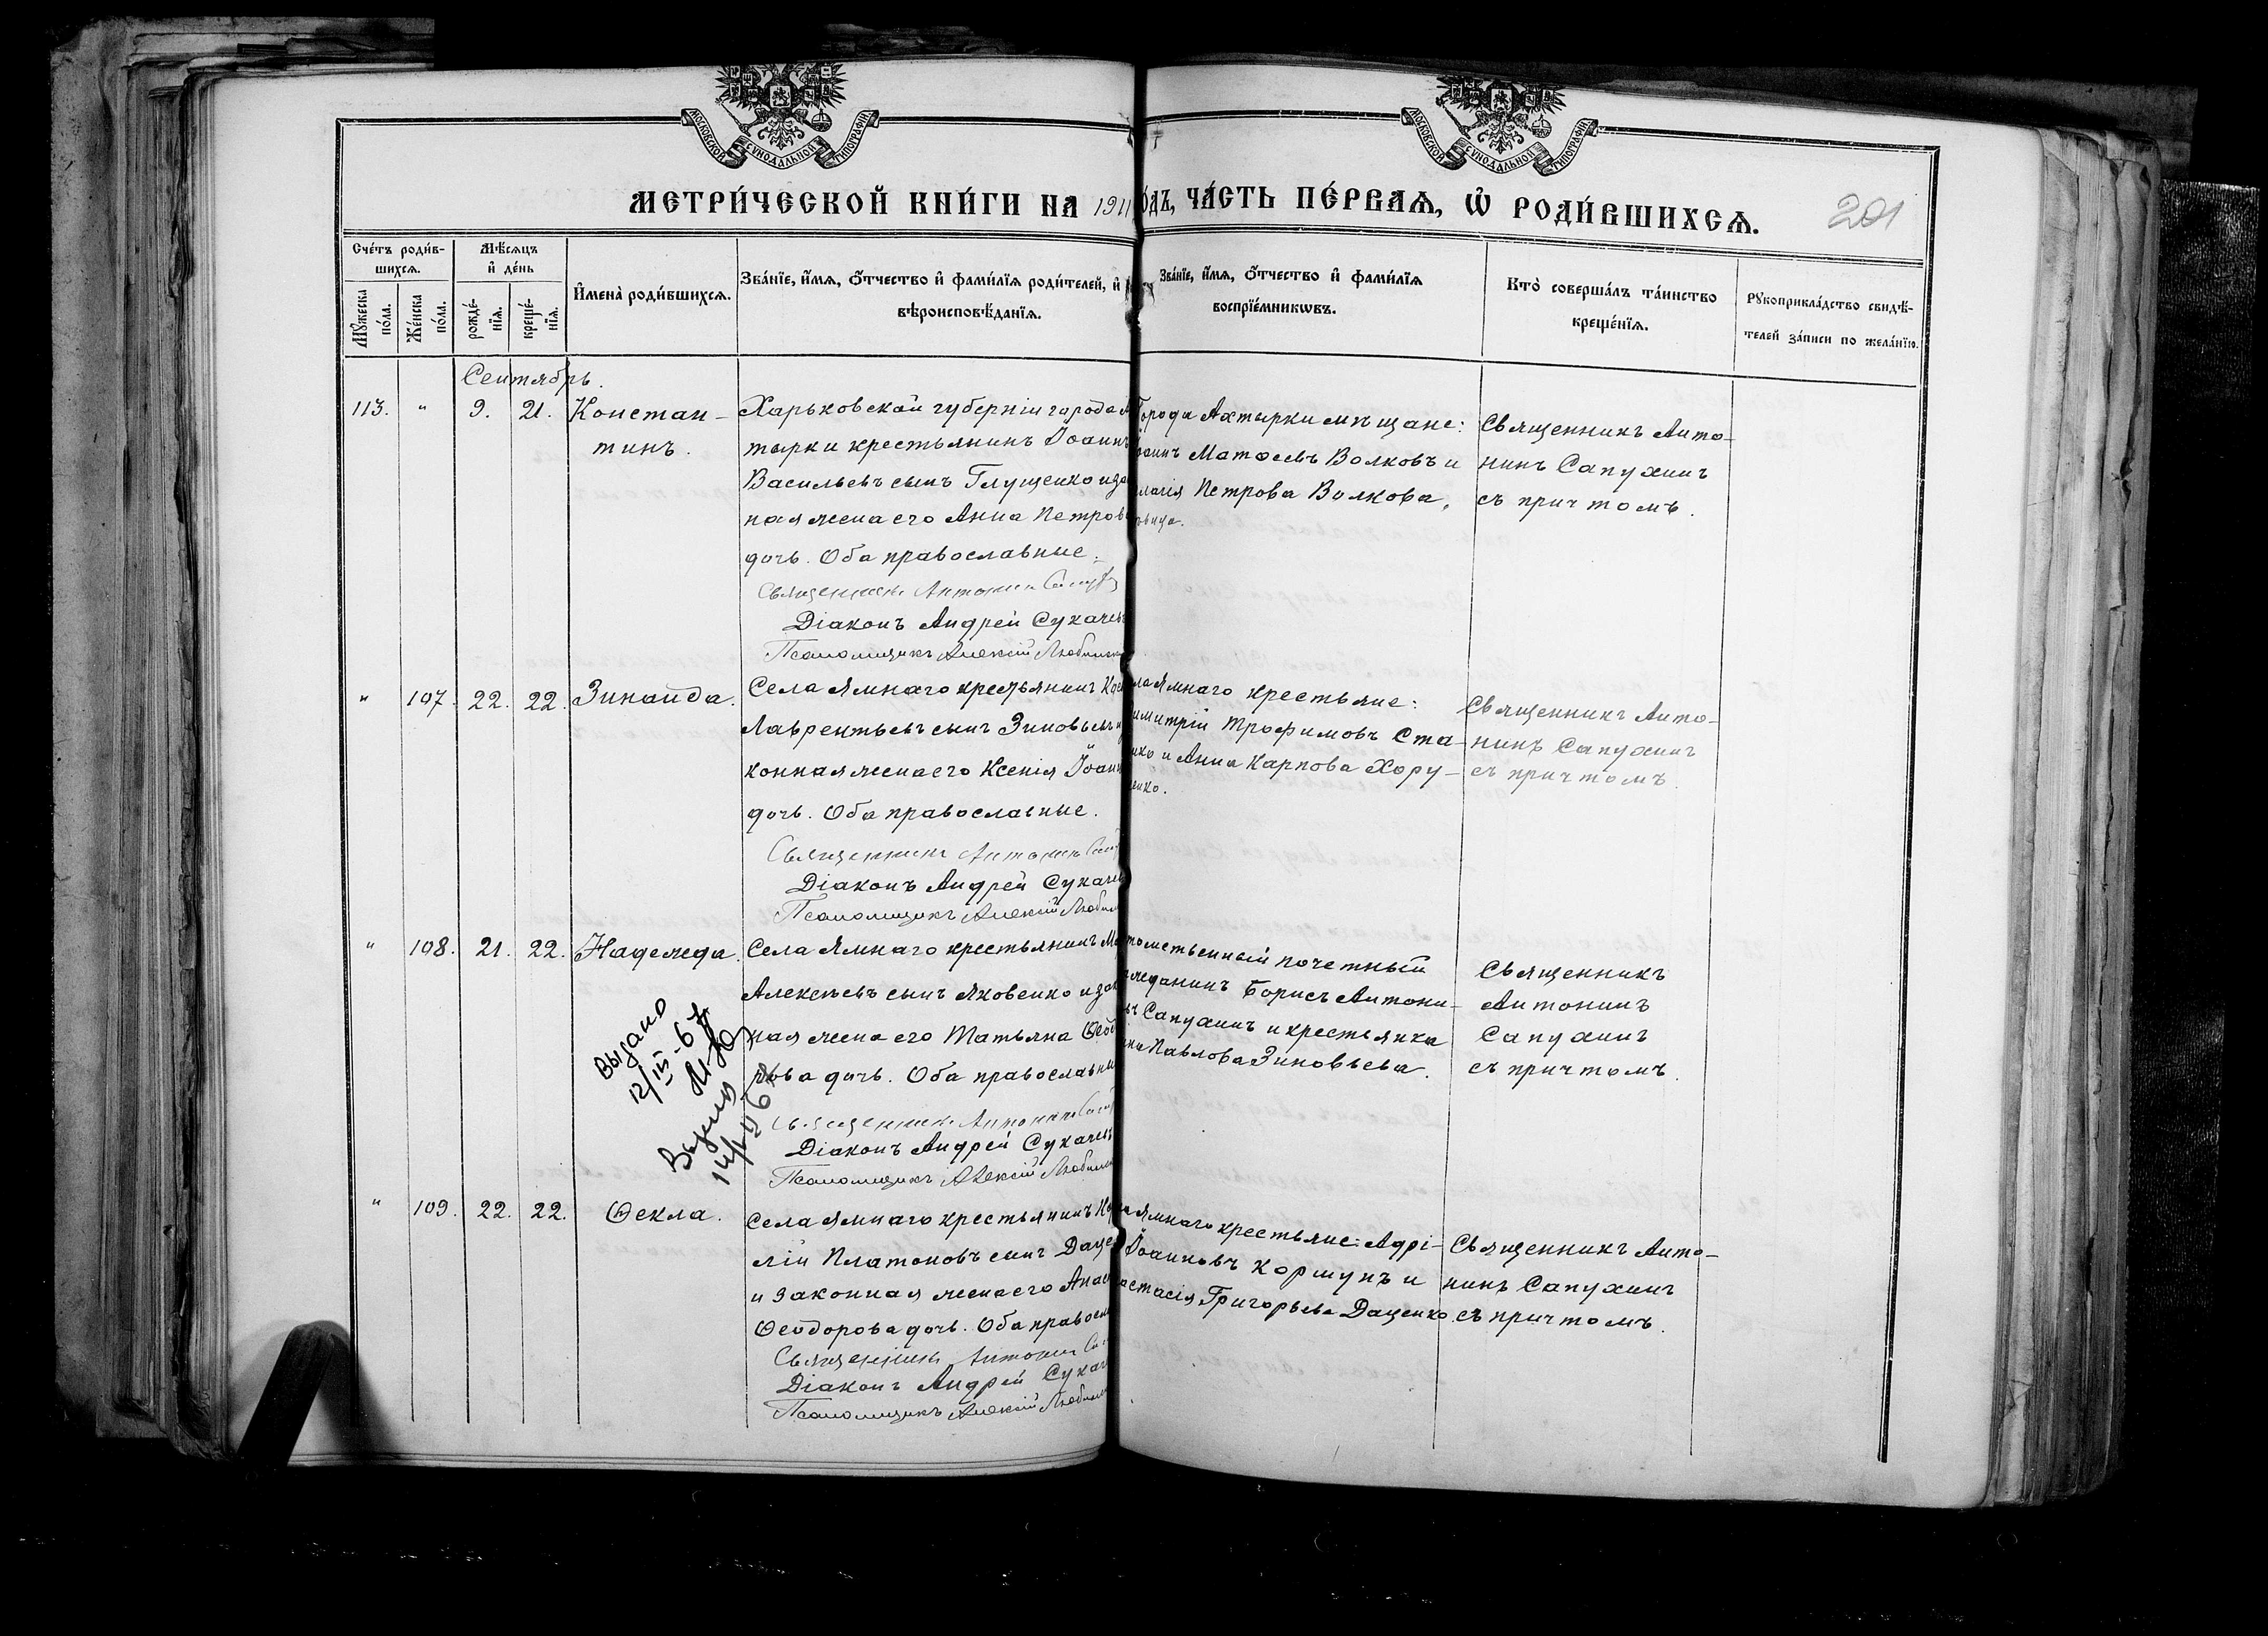 МОСКОВСКОЙ СѴНОДАЛЬНОЙ ТИПОГРАФІИ
МОСКОВСКОЙ СѴНОДАЛЬНОЙ ТИПОГРАФІИ
МЕТРИ́ЧЕСКОЙ КНИ́ГИ НА 1911
ГО́ДЪ, ЧА́СТЬ ПЕ́РВАѦ, Ѡ҆ РОДИ́ВШИХСѦ.
201
Сче́тъ роди́в-
шихсѧ.
Мꙋ́жеска по́ла.
Же́нска по́ла.
Мѣ́сѧцъ
и҆ де́нь
рожде́-
нїѧ.
креще́-
нїѧ.
И҆мена̀ роди́вшихсѧ.
Зва́нїе, и҆́мѧ, ѻ҆́тчество и҆ фами́лїѧ роди́телей, и҆
вѣроисповѣ́данїѧ.
Зва́нїе, и҆́мѧ, ѻ҆́тчество и҆ фами́лїѧ
воспрїе́мникѡвъ.
Кто̀ соверша́лъ та́инство
креще́нїѧ.
Рꙋкоприкла́дство свидѣ́-
телей за́писи по жела́нїю.
Сентябрь.
113. " 9. 21. Констан-
тинъ.
Харьковской губерніи города
тырки крестьянинъ Іоаннъ
Васильевъ сынъ Глущенко и
ная жена его Анна Петров
дочь. Оба православные.
Священникъ Антонин
Діаконъ Андрей Сукачевъ
Псаломщикъ Алексій
Города Ахтырки мѣщане:
Матѳеевъ Волковъ и
Петрова Волкова,
Священникъ Анто-
нинъ Сапухинъ
съ причтомъ.
" 107. 22. 22. Зинаида.
Села Ямнаго крестьянинъ
Лаврентьевъ сынъ Зиновьевъ и
конная жена его Ксенія Іоанн
дочь. Оба православные.
Священникъ Антонинъ
Діаконъ Андрей Сукачев
Псаломщикъ Алексій
Ямнаго крестьяне:
Трофимовъ Ста-
и Анна Карпова Хору-
енко.
Священникъ Анто-
нинъ Сапухинъ
съ причтомъ.
" 108. 21. 22. Надежда.
Села Ямнаго крестьянинъ
Алексѣевъ сынъ Яковенко и зак
ная жена его Татьяна Ѳеод
рова дочь. Оба православны
Священник Антонинъ
Діаконъ Андрей Сукачевъ
Псаломщикъ Алексій
почетный
Борисъ Антони-
Сапухинъ и крестьянка
Павлова Зиновьева.
Священникъ
Антонинъ
Сапухинъ
съ причтомъ.
Выдано
12/III-67
" 109. 22. 22. Ѳекла.
Села Ямнаго крестьянинъ
лій Платоновъ сынъ Даце
и законная жена его Анас
Ѳеодорова дочь. Оба правосл
Священникъ Антонин
Діаконъ Андрей Сукач
Псаломщикъ Алексій
Ямнаго крестьяне: Адрі-
Іоанновъ Коршунъ и
Григорьева Даценко.
Священникъ Анто-
нинъ Сапухинъ
съ причтомъ.